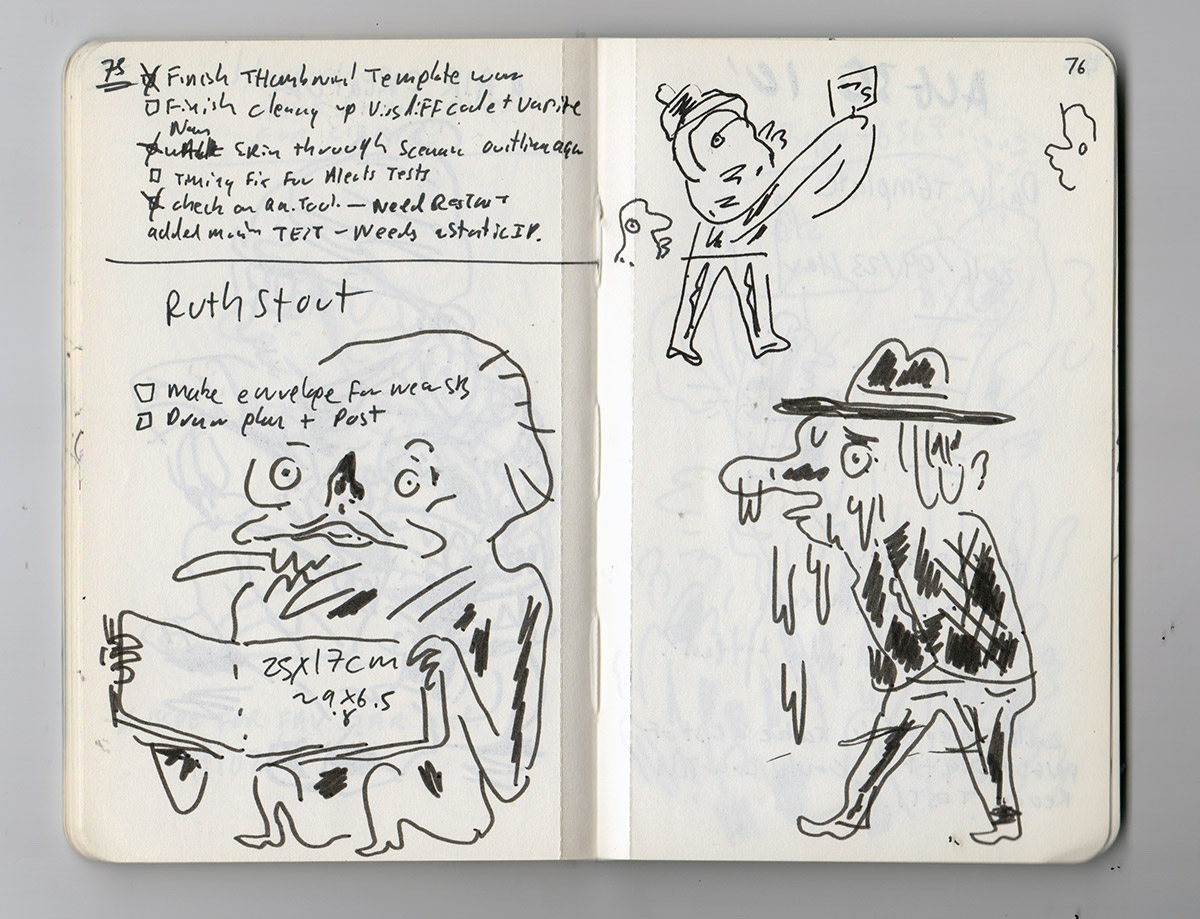 75
Finish Thumbnail Template
Finish cleaning up Visdiff code +
Nav
skim through Scenario outline again
Timing Fix For Alerts Tests
check on – Need Restart
added main TEST – Needs a Static IP.
Ruth Stout
Make envelope for
Draw plan + Post
25x17cm
~9x6.5
76